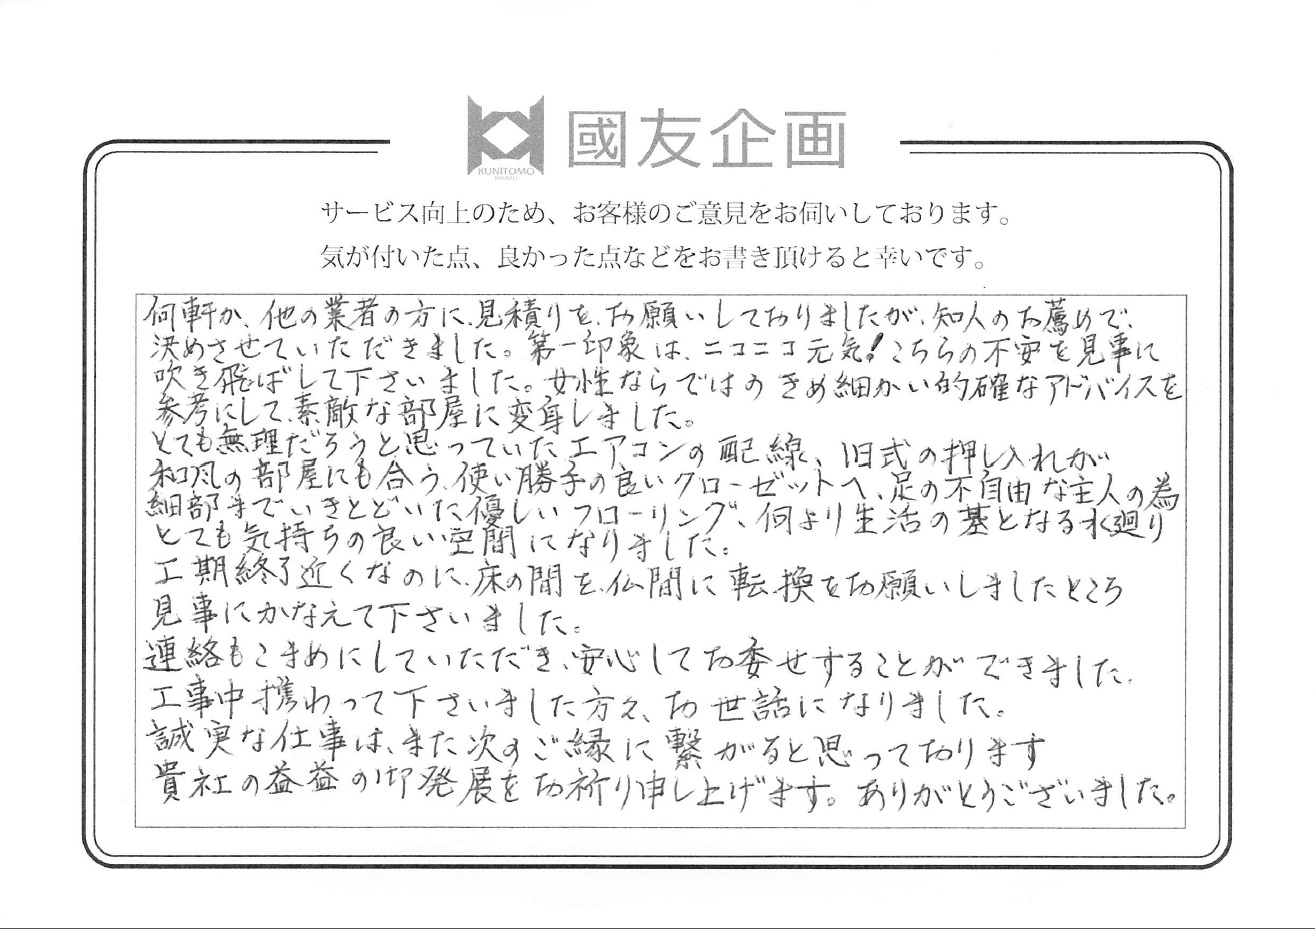 國友企画
KUNITOMO
KIKAKU
サービス向上のため、お客様のご意見をお伺いしております。
気が付いた点、良かった点などをお書き頂けると幸いです。
何軒か、他の業者の方に、見積りを、お願いしておりましたが、知人のお薦めで、
決めさせていただきました。第一印象は、ニコニコ元気!こちらの不安を見事に
吹き飛ばして下さいました。女性ならではのきめ細かい的確なアドバイスを
参考にして、素敵な部屋に変身しました。
とても無理だろうと思っていたエアコンの配線、旧式の押し入れが
和風の部屋にも合う、使い勝手の良いクローゼットへ、足の不自由な主人の為
細部までいきとどいた、優しいフローリング、何より生活の基となる水廻り
とても気持ちの良い空間になりました。
工期終了近くなのに、床の間を、仏間に転換をお願いしましたところ
見事にかなえて下さいました。
連絡もこまめにしていただき、安心してお委せすることができました.
工事中携わって下さいました方々、お世話になりました。
誠実な仕事は、また次のご縁に繋がると思っております
貴社の益益の御発展をお祈り申し上げます。ありがとうございました。